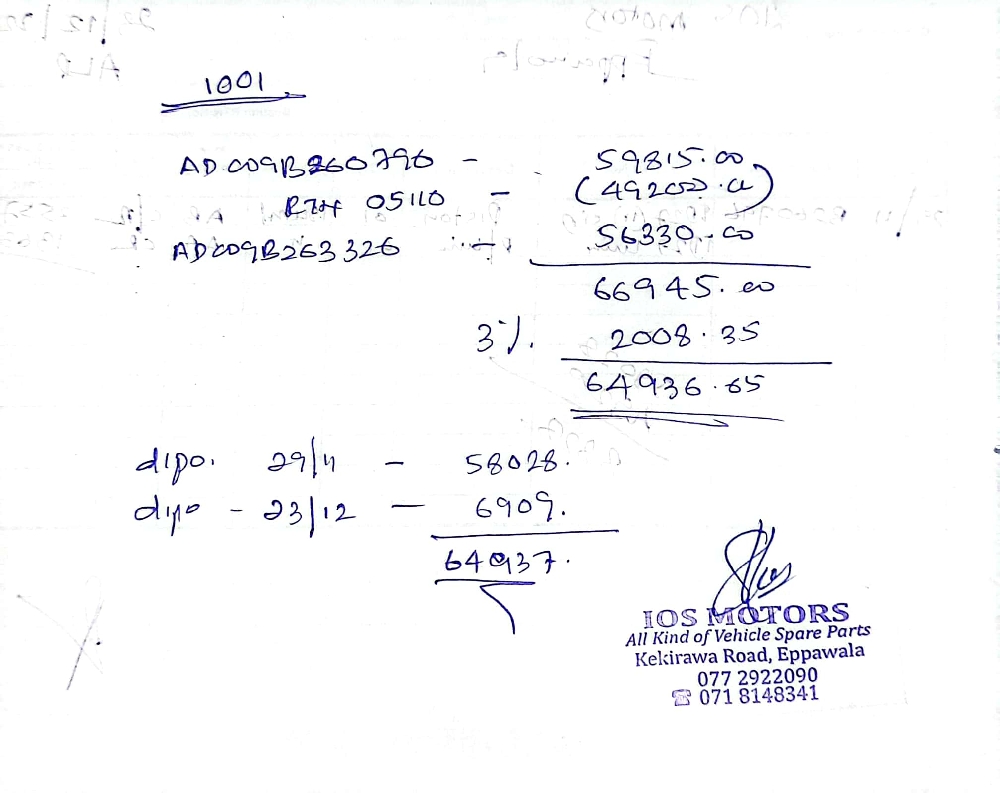 1001
AD C09B260790 - 59815.00
RTN 05110 - (49200.00)
AD C09B263326 - 56330.00
66945.00
3%. 2008.35
64936.65
dipo. 29/11 - 58028.
dipo - 23/12 - 6909.
64937.
IOS MOTORS
All Kind of Vehicle Spare Parts
Kekirawa Road, Eppawala
077 2922090
☎ 071 8148341